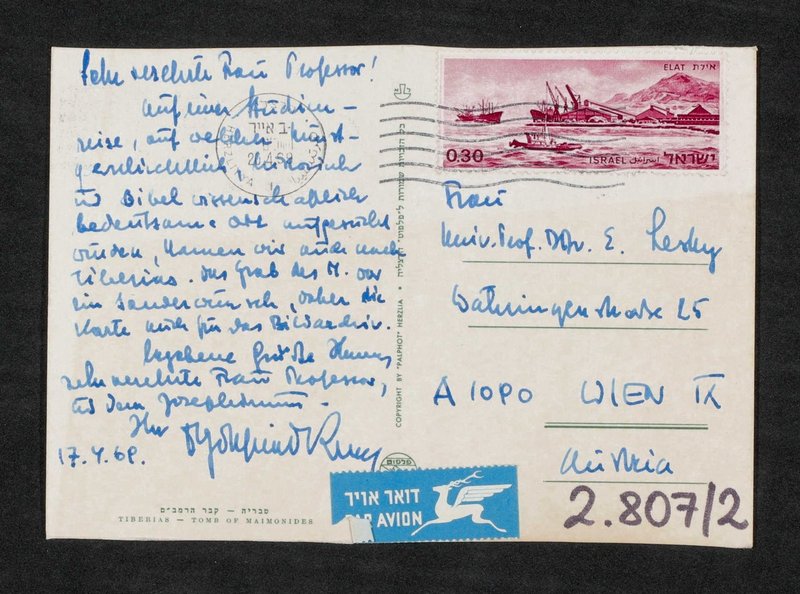 Sehr verehrte Frau Professor!
Auf einer Studien-
reise, auf welcher kunst-
geschichtlich, historisch
und Bibelwissenschaftlich
bedeutsame Orte aufgesucht
wurden, kamen wir auch nach
Tiberias. Das Grab des M. war
ein Sonderwunsch, daher die
Karte auch für das Bildarchiv.
Ergebene Grüße Ihnen,
sehr verehrte Frau Professor,
und dem Josephinum.
Ihr
17.4.69.
טבריה – קבר הרמב"ם
TIBERIAS – TOMB OF MAIMONIDES
COPYRIGHT BY "PALPHOT" HERZLIA
פלפוט
דואר אויר
PAR AVION
אילת ELAT
0.30
ISRAEL اسرائيل ישראל
Frau
Univ. Prof. DDr. E. Lesky
Währingerstraße 25
A 1090 WIEN IX
Austria
2.807/2